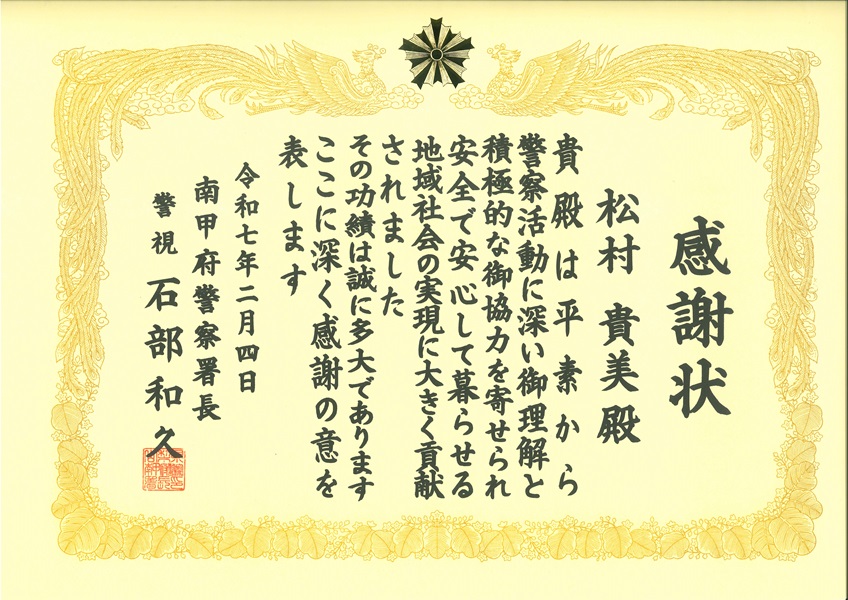 感謝状
松村 貴美殿
貴殿は平素から
警察活動に深い御理解と
積極的な御協力を寄せられ
安全で安心して暮らせる
地域社会の実現に大きく貢献
されました
その功績は誠に多大であります
ここに深く感謝の意を
表します
令和七年二月四日
南甲府警察署長
警視 石部和久